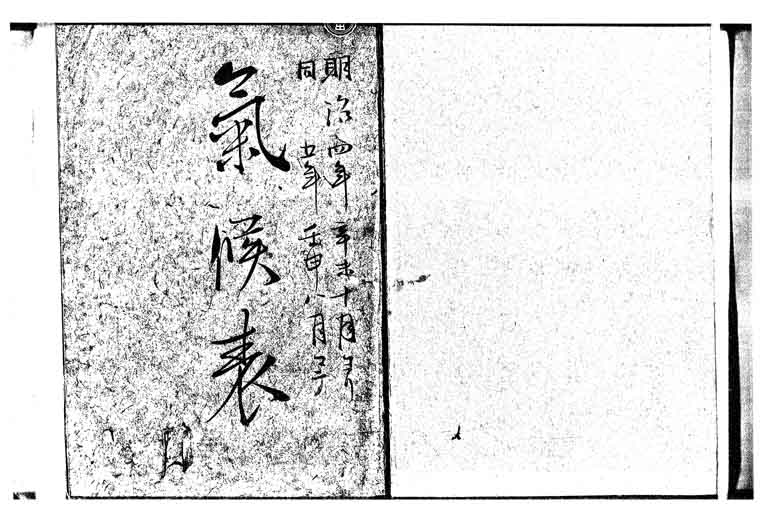 明治四年辛未十月ヨリ
同五年壬申八月マテ
氣候表